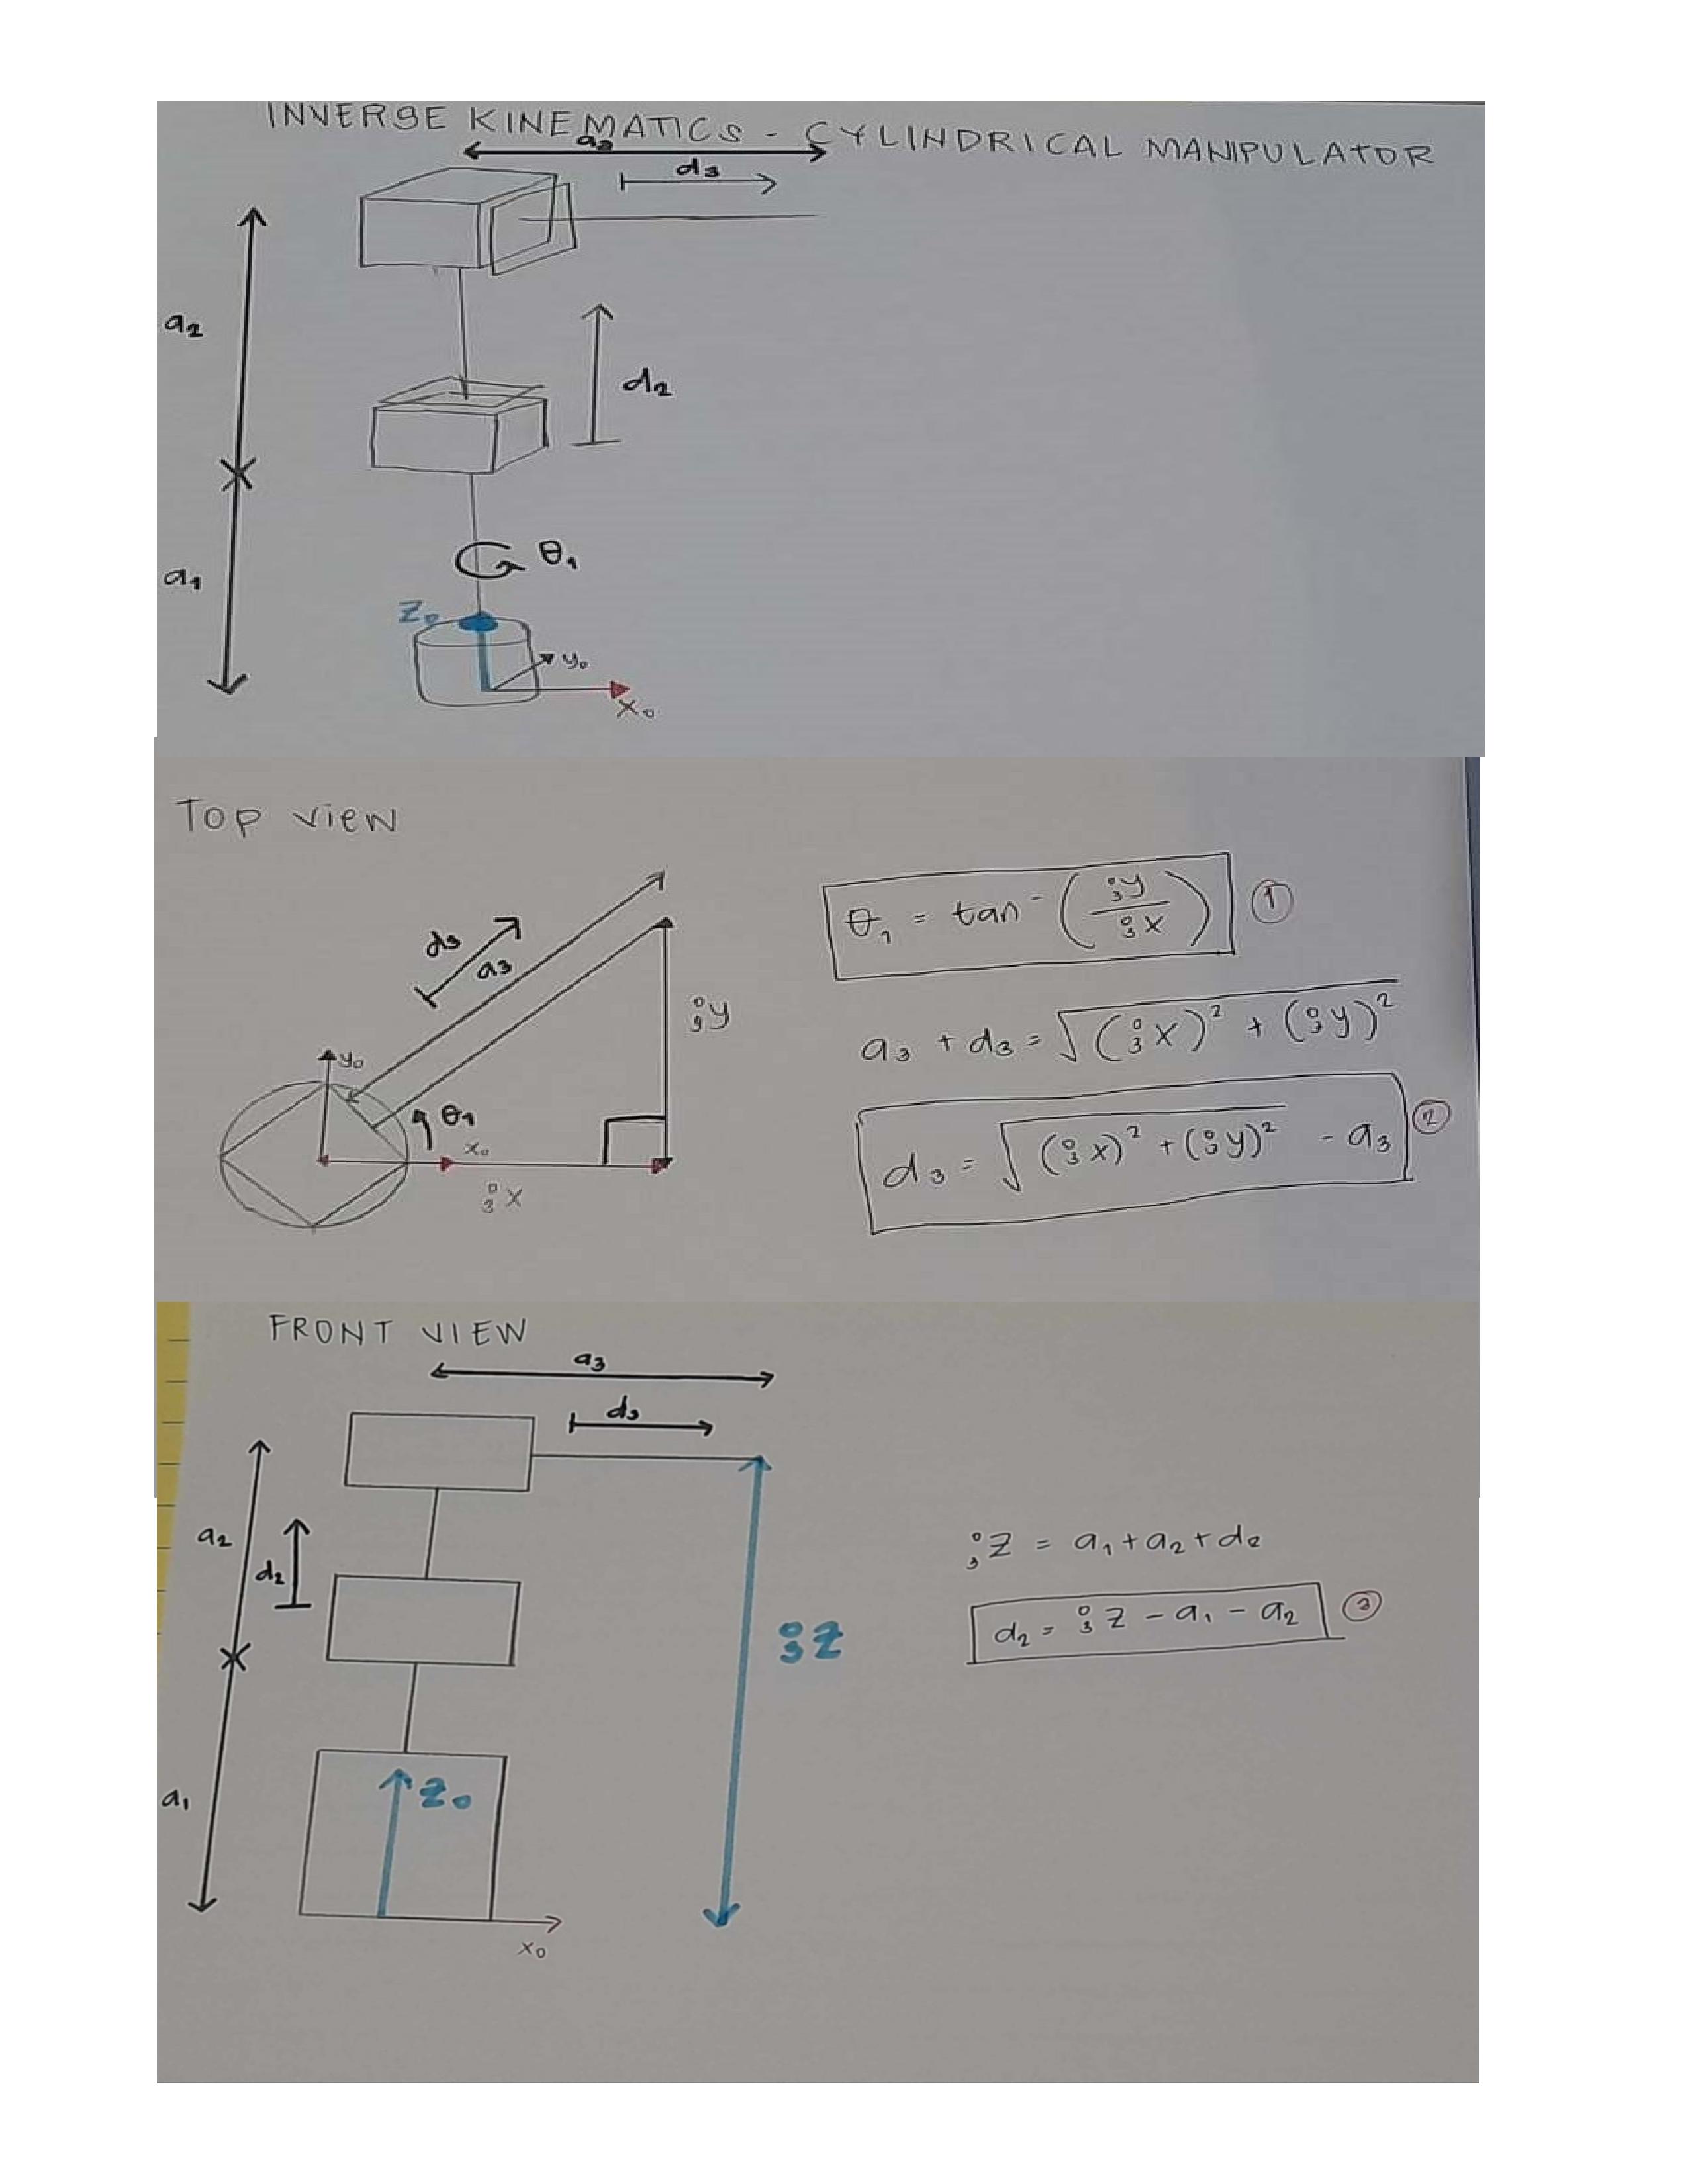 INVERSE KINEMATICS - CYLINDRICAL MANIPULATOR
a₃
d₃
a₂
d₂
a₁
θ₁
Z₀
y₀
X₀
Top view
d₃
a₃
⁰₃y
y₀
θ₁
x₀
⁰₃X
θ₁ = tan⁻ (⁰₃y / ⁰₃X) ①
a₃ + d₃ = √((⁰₃X)² + (⁰₃y)²)
d₃ = √((⁰₃X)² + (⁰₃y)²) - a₃ ②
FRONT VIEW
a₃
d₃
a₂
d₂
⁰₃Z
a₁
Z₀
X₀
⁰₃Z = a₁ + a₂ + d₂
d₂ = ⁰₃Z - a₁ - a₂ ③